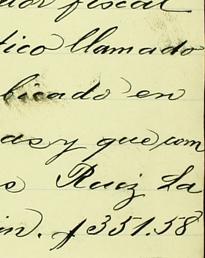 dor fiscal
tico llamado
bicado en
as y que com
s Ruiz La
in. $351.58